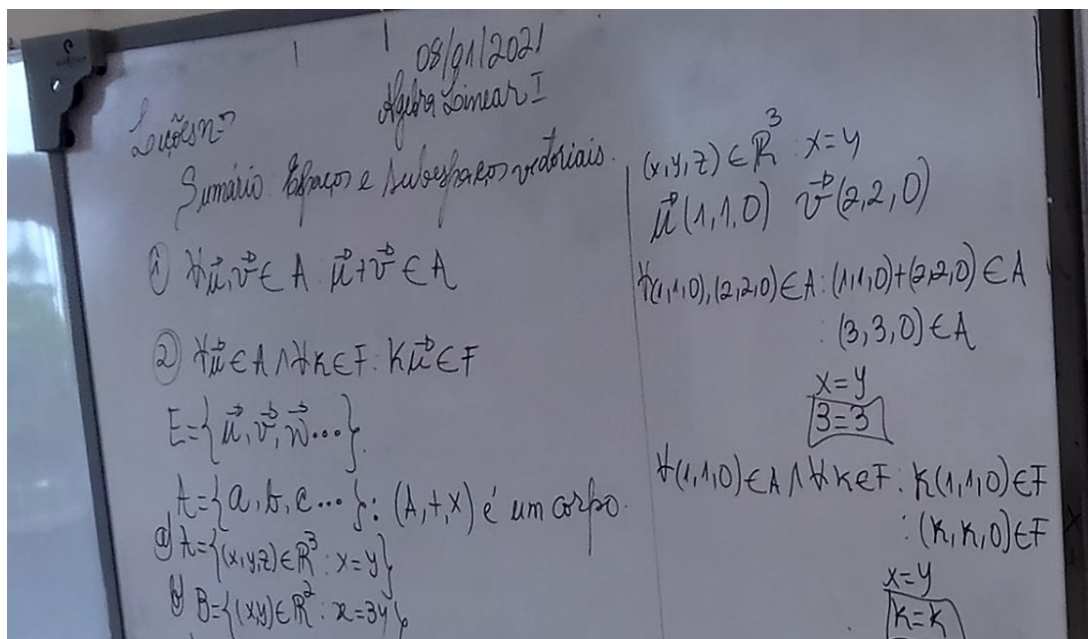 08/01/2021
Algebra Linear I
Lições nº
Sumário: Espaços e subespaços vectoriais.
① ∀u⃗,v⃗ ∈ A: u⃗+v⃗ ∈ A
② ∀u⃗ ∈ A ∧ ∀K ∈ F: Ku⃗ ∈ F
E={u⃗, v⃗, w⃗...}.
A={a, b, c...}: (A,+,x) é um corpo.
a) A={(x,y,z)∈R³: x=y}
b) B={(x,y)∈R²: x=3y}
(x,y,z)∈R³: x=y
u⃗(1,1,0) v⃗(2,2,0)
∀(1,1,0),(2,2,0)∈A:(1,1,0)+(2,2,0)∈A
:(3,3,0)∈A
x=y
3=3
∀(1,1,0)∈A ∧ ∀K∈F: K(1,1,0)∈F
:(K,K,0)∈F
x=y
K=K